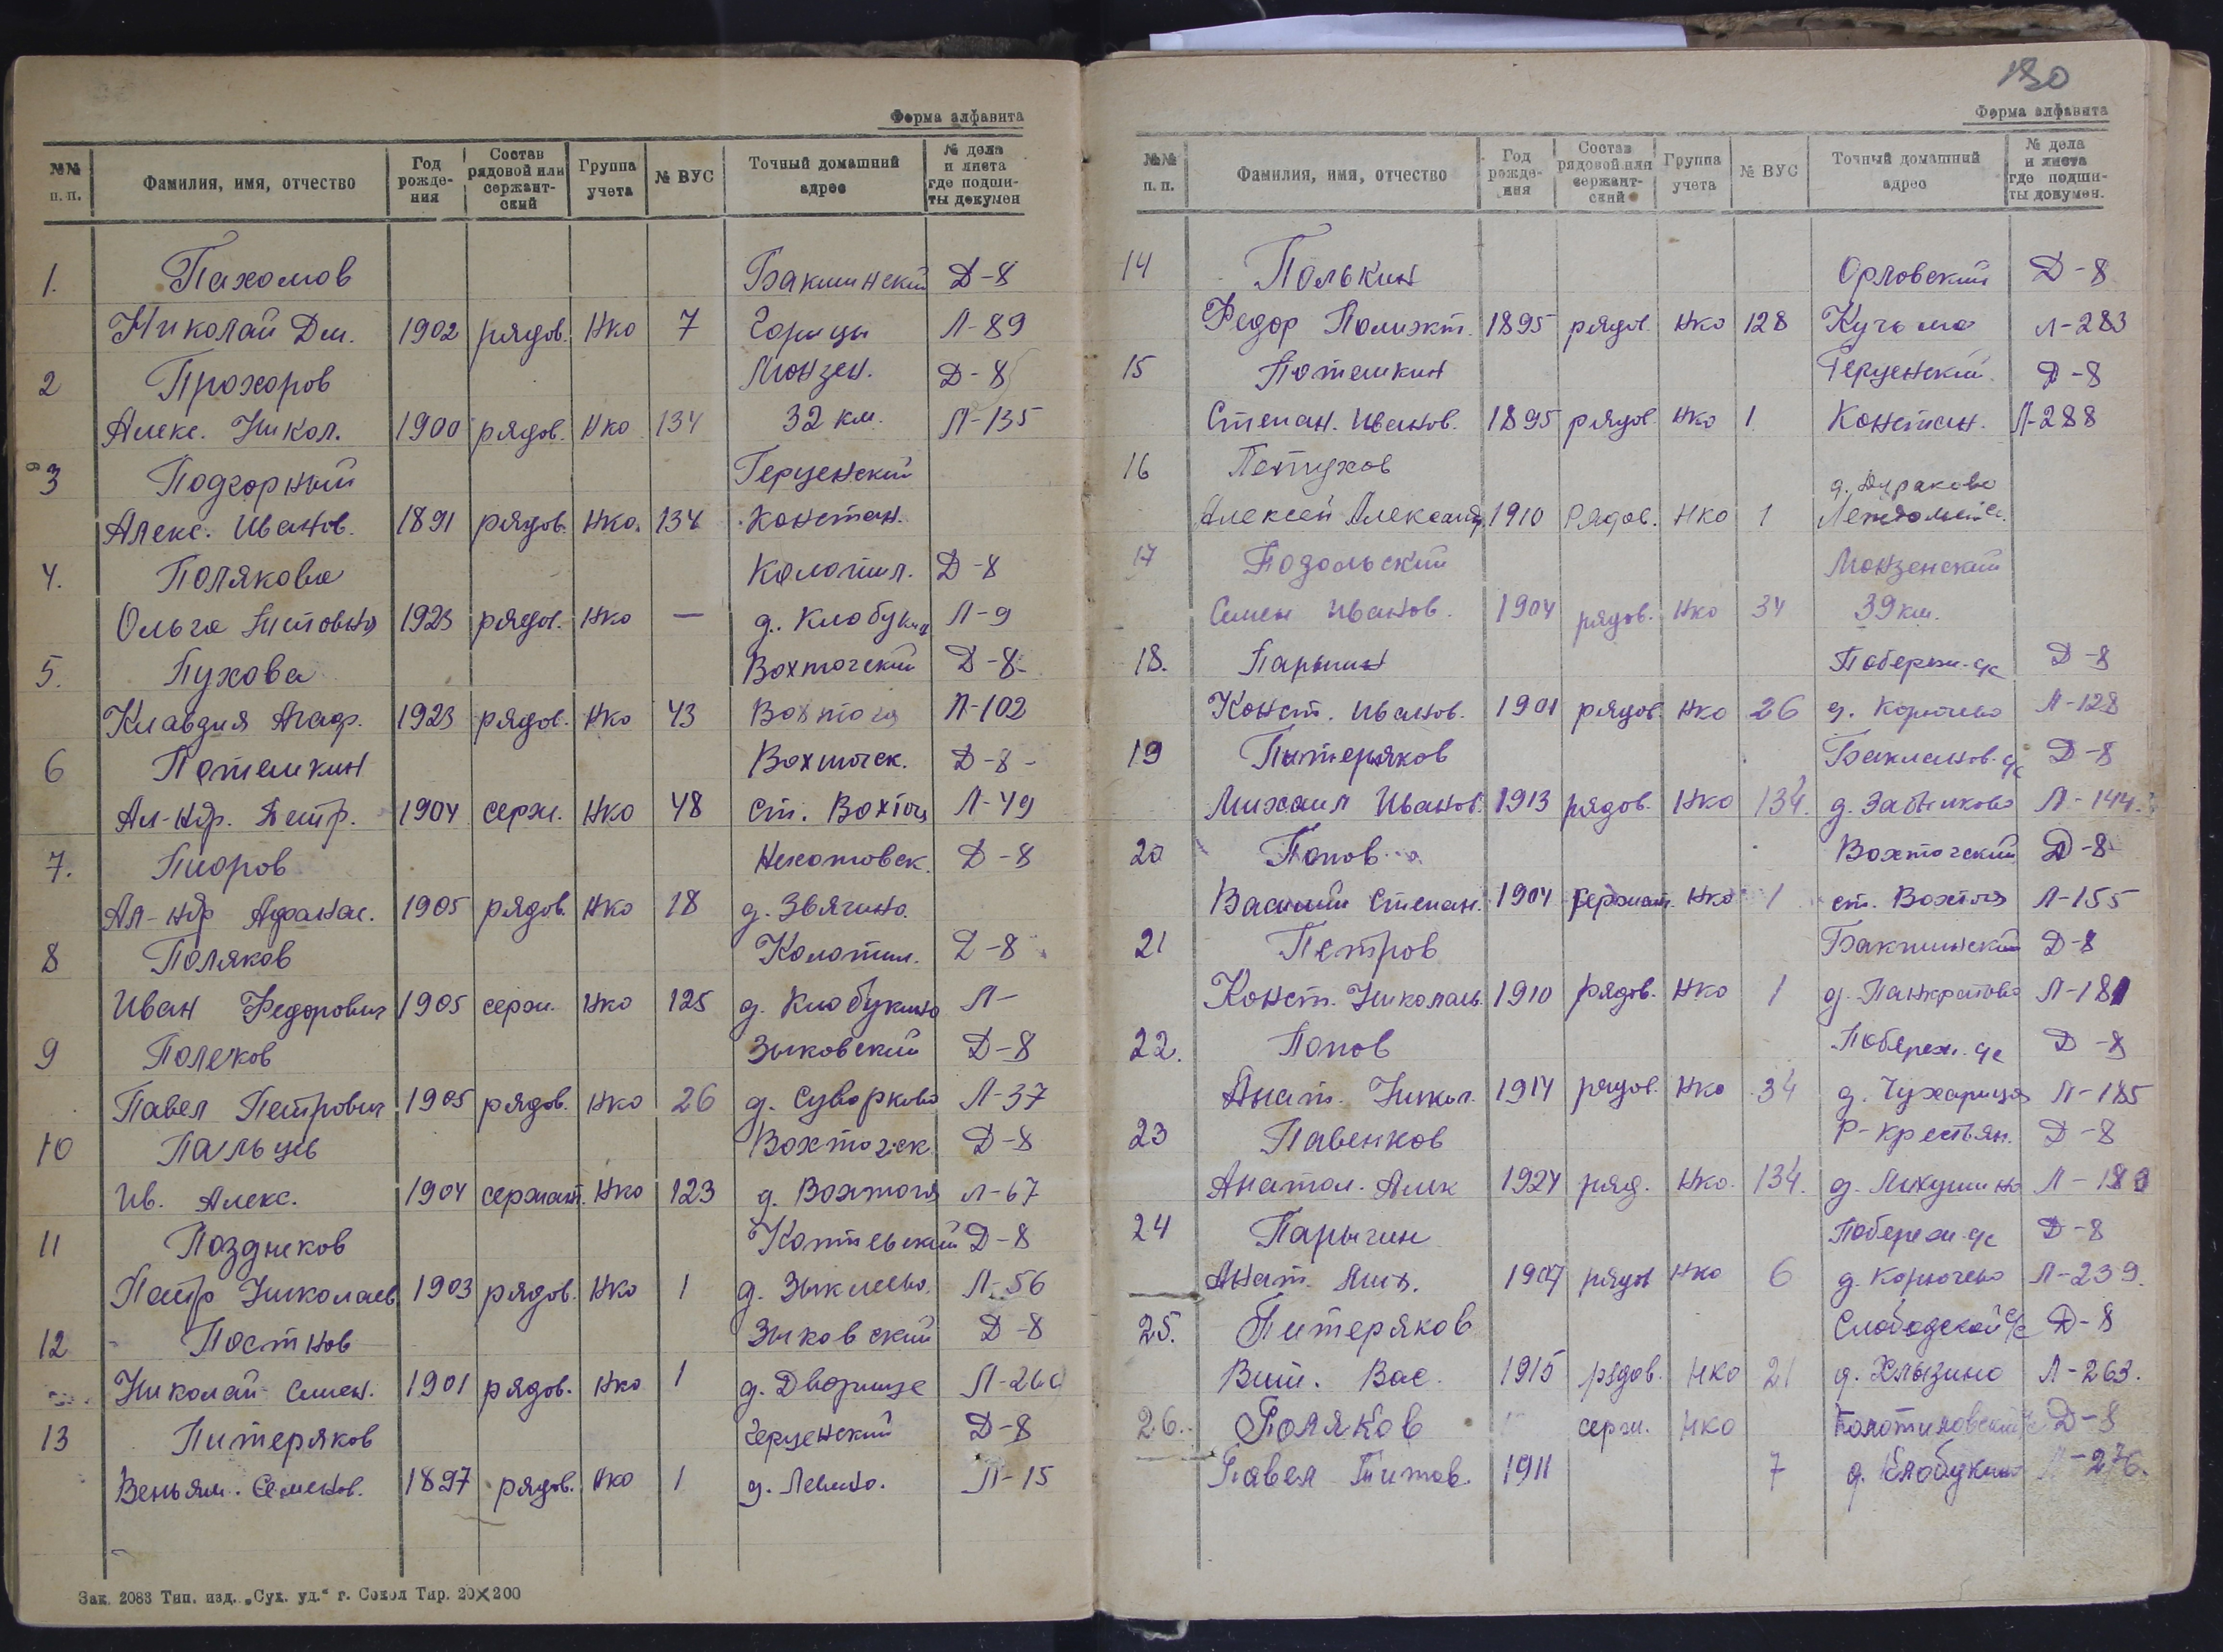 Форма алфавита
№№ п. п. Фамилия, имя, отчество Год рожде-ния Состав рядовой или сержант-ский Группа учета № ВУС Точный домашний адрес № дела и листа где подши-ты докумен
1. Пахомов Бакшинский Д-8
Николай Дм. 1902 рядов. Нко 7 Горицы Л-89
2 Прохоров Монзен. Д-8
Алекс. Никол. 1900 рядов. Нко 134 32 км. Л-135
3 Подгорный Герценский
Алекс. Иванов. 1891 рядов. Нко. 134 Констан.
4. Полякова Колотил. Д-8
Ольга Титовна 1923 рядов. Нко — д. Клобукин Л-9
5. Пухова Вохтогский Д-8
Клавдия Агаф. 1923 рядов. Нко 43 Вохтога Л-102
6 Потемкин Вохтогск. Д-8
Ал-ндр. Петр. 1904 серж. Нко 48 ст. Вохтога Л-49
7. Пиоров Д-8
Ал-ндр Афанас. 1905 рядов. Нко 18 д. Звягино.
8 Поляков Колотил. Д-8
Иван Федорович 1905 серж. Нко 125 д. Клобукино Л-
9 Полеков Зыковский Д-8
Павел Петрович 1905 рядов. Нко 26 д. Суворково Л-37
10 Пальцев Вохтогск. Д-8
Ив. Алекс. 1904 сержант. Нко 123 д. Вохтога Л-67
11 Поздняков Д-8
Петр Николаев 1903 рядов. Нко 1 д. Л-56
12 Постнов Зыковский Д-8
Николай Семен. 1901 рядов. Нко 1 д. Дворище Л-260
13 Питеряков Герценский Д-8
Веньям. Семенов. 1897 рядов. Нко 1 д. Левино. Л-15
Зак. 2083 Тип. изд. „Сух. уд." г. Сокол Тир. 20×200
130
Форма алфавита
№№ п. п. Фамилия, имя, отчество Год рожде-ния Состав рядовой или сержант-ский Группа учета № ВУС Точный домашний адрес № дела и листа где подши-ты докумен.
14 Полькин Орловский Д-8
Федор Полиэкт. 1895 рядов. Нко 128 Кучьма Л-283
15 Потемкин Герценский Д-8
Степан. Иванов. 1895 рядов. Нко 1 Констан. Л-288
16 Петухов д. Дураково
Алексей Александ. 1910 Рядов. Нко 1
17 Подольский Монзенский
Семен Иванов. 1904 рядов. Нко 34 39 км.
18. Парыгин Побереж. с/с Д-8
Конст. Иванов. 1901 рядов. Нко 26 д. Корючево Л-128
19 Питеряков Бакланов. с/с Д-8
Михаил Иванов. 1913 рядов. Нко 134. д. Л-144
20 Попов Вохтогский Д-8
Василий Степан. 1904 сержант. Нко 1 ст. Вохтога Л-155
21 Петров Бакшинский Д-8
Конст. Николаев. 1910 рядов. Нко 1 д. Панкратово Л-181
22. Попов Побереж. с/с Д-8
Анат. Никол. 1914 рядов. Нко 34 д. Чухарица Л-185
23 Павенков Р-Крестьян. Д-8
Анатол. Алек 1924 ряд. Нко. 134. д. Михушино Л-180
24 Парыгин Побереж. с/с Д-8
Анат. Мих. 1907 рядов Нко 6 д. Корючево Л-239.
25. Питеряков Слободской с/с Д-8
Вит. Вас. 1915 рядов. Нко 21 д. Хлызино Л-263.
26. Поляков серж. Нко Колотиловский с/с Д-8
Павел Титов. 1911 7 д. Клобукино Л-276.